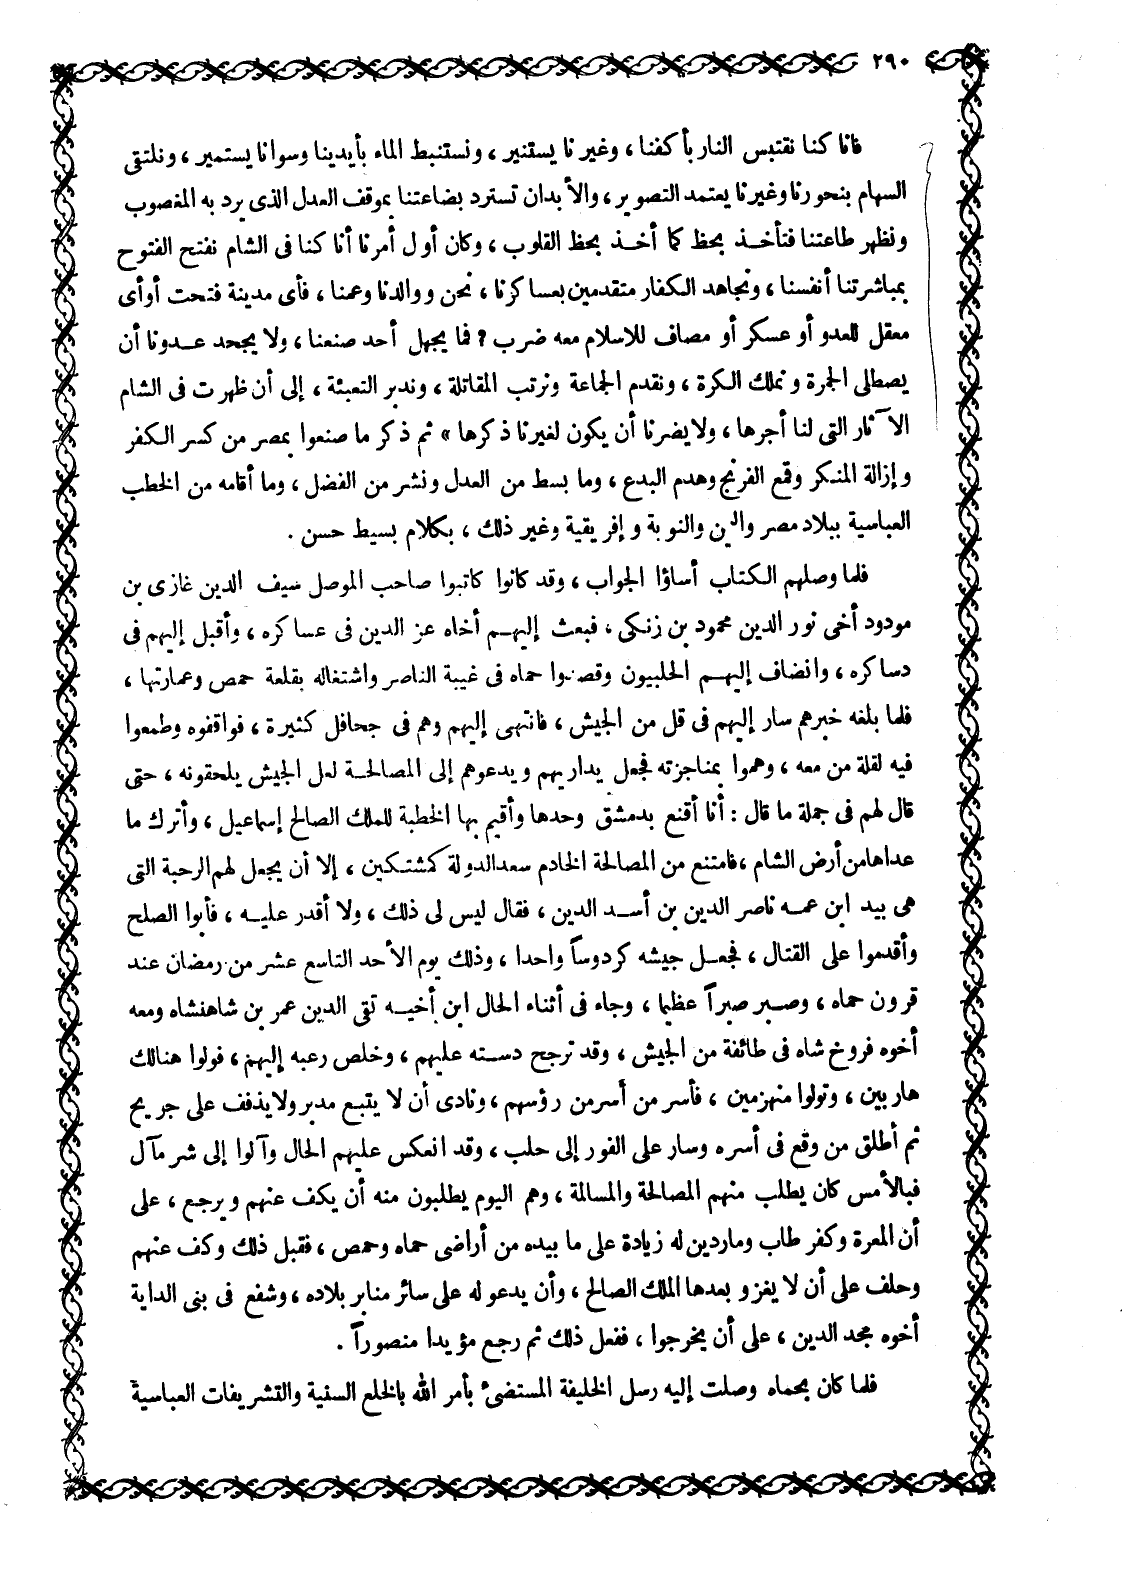 ٢٩٠
فانا كنا نقتبس النار بأكفنا ، وغيرنا يستنير ، ونستنبط الماء بأيدينا وسوانا يستمير ، ونلتقى
السهام بنحورنا وغيرنا يعتمد التصوير ، والأبدان تسترد بضاعتنا بموقف العدل الذى يرد به المغصوب
ونظهر طاعتنا فتأخذ بحظ كما أخذ بحظ القلوب ، وكان أول أمرنا أنا كنا فى الشام نفتح الفتوح
بمباشرتنا أنفسنا ، ونجاهد الكفار متقدمين بعساكرنا ، نحن ووالدنا وعمنا ، فأى مدينة فتحت أوأى
معقل للعدو أو عسكر أو مصاف للاسلام معه ضرب ؟ فما يجهل أحد صنعنا ، ولا يجحد عدونا أن
يصطلى الجمرة ونملك الكرة ، ونقدم الجماعة ونرتب المقاتلة ، وندبر التعبئة ، إلى أن ظهرت فى الشام
الآثار التى لنا أجرها ، ولا يضرنا أن يكون لغيرنا ذكرها » ثم ذكر ما صنعوا بمصر من كسر الكفر
وإزالة المنكر وقمع الفرنج وهدم البدع ، وما بسط من العدل ونشر من الفضل ، وما أقامه من الخطب
العباسية ببلاد مصر واليمن والنوبة وإفريقية وغير ذلك ، بكلام بسيط حسن .
فلما وصلهم الكتاب أساؤا الجواب ، وقد كانوا كاتبوا صاحب الموصل سيف الدين غازى بن
مودود أخى نور الدين محمود بن زنكى ، فبعث إليهم أخاه عز الدين فى عساكره ، وأقبل إليهم فى
دساكره ، وانضاف إليهم الحلبيون وقصدوا حماه فى غيبة الناصر واشتغاله بقلعة حمص وعمارتها ،
فلما بلغه خبرهم سار إليهم فى قل من الجيش ، فانتهى إليهم وهم فى جحافل كثيرة ، فواقفوه وطمعوا
فيه لقلة من معه ، وهموا بمناجزته فجعل يداريهم ويدعوهم إلى المصالحة لعل الجيش يلحقونه ، حتى
قال لهم فى جملة ما قال : أنا أقنع بدمشق وحدها وأقيم بها الخطبة للملك الصالح إسماعيل ، وأترك ما
عداها من أرض الشام ، فامتنع من المصالحة الخادم سعد الدولة كمشتكين ، إلا أن يجعل لهم الرحبة التى
هى بيد ابن عمه ناصر الدين بن أسد الدين ، فقال ليس لى ذلك ، ولا أقدر عليه ، فأبوا الصلح
وأقدموا على القتال ، فجعل جيشه كردوساً واحدا ، وذلك يوم الأحد التاسع عشر من رمضان عند
قرون حماه ، وصبر صبراً عظيما ، وجاء فى أثناء الحال ابن أخيه تقى الدين عمر بن شاهنشاه ومعه
أخوه فروخ شاه فى طائفة من الجيش ، وقد ترجح دسته عليهم ، وخلص رعبه إليهم ، فولوا هنالك
هاربين ، وتولوا منهزمين ، فأسر من أسر من رؤسهم ، ونادى أن لا يتبع مدبر ولا يذفف على جريح
ثم أطلق من وقع فى أسره وسار على الفور إلى حلب ، وقد انعكس عليهم الحال وآلوا إلى شر مآل
فبالأمس كان يطلب منهم المصالحة والمسالمة ، وهم اليوم يطلبون منه أن يكف عنهم ويرجع ، على
أن المعرة وكفر طاب وماردين له زيادة على ما بيده من أراضى حماه وحمص ، فقبل ذلك وكف عنهم
وحلف على أن لا يغزو بعدها الملك الصالح ، وأن يدعو له على سائر منابر بلاده ، وشفع فى بنى الداية
أخوه مجد الدين ، على أن يخرجوا ، ففعل ذلك ثم رجع مؤيدا منصوراً .
فلما كان بحماه وصلت إليه رسل الخليفة المستضئ بأمر الله بالخلع السنية والتشريفات العباسية